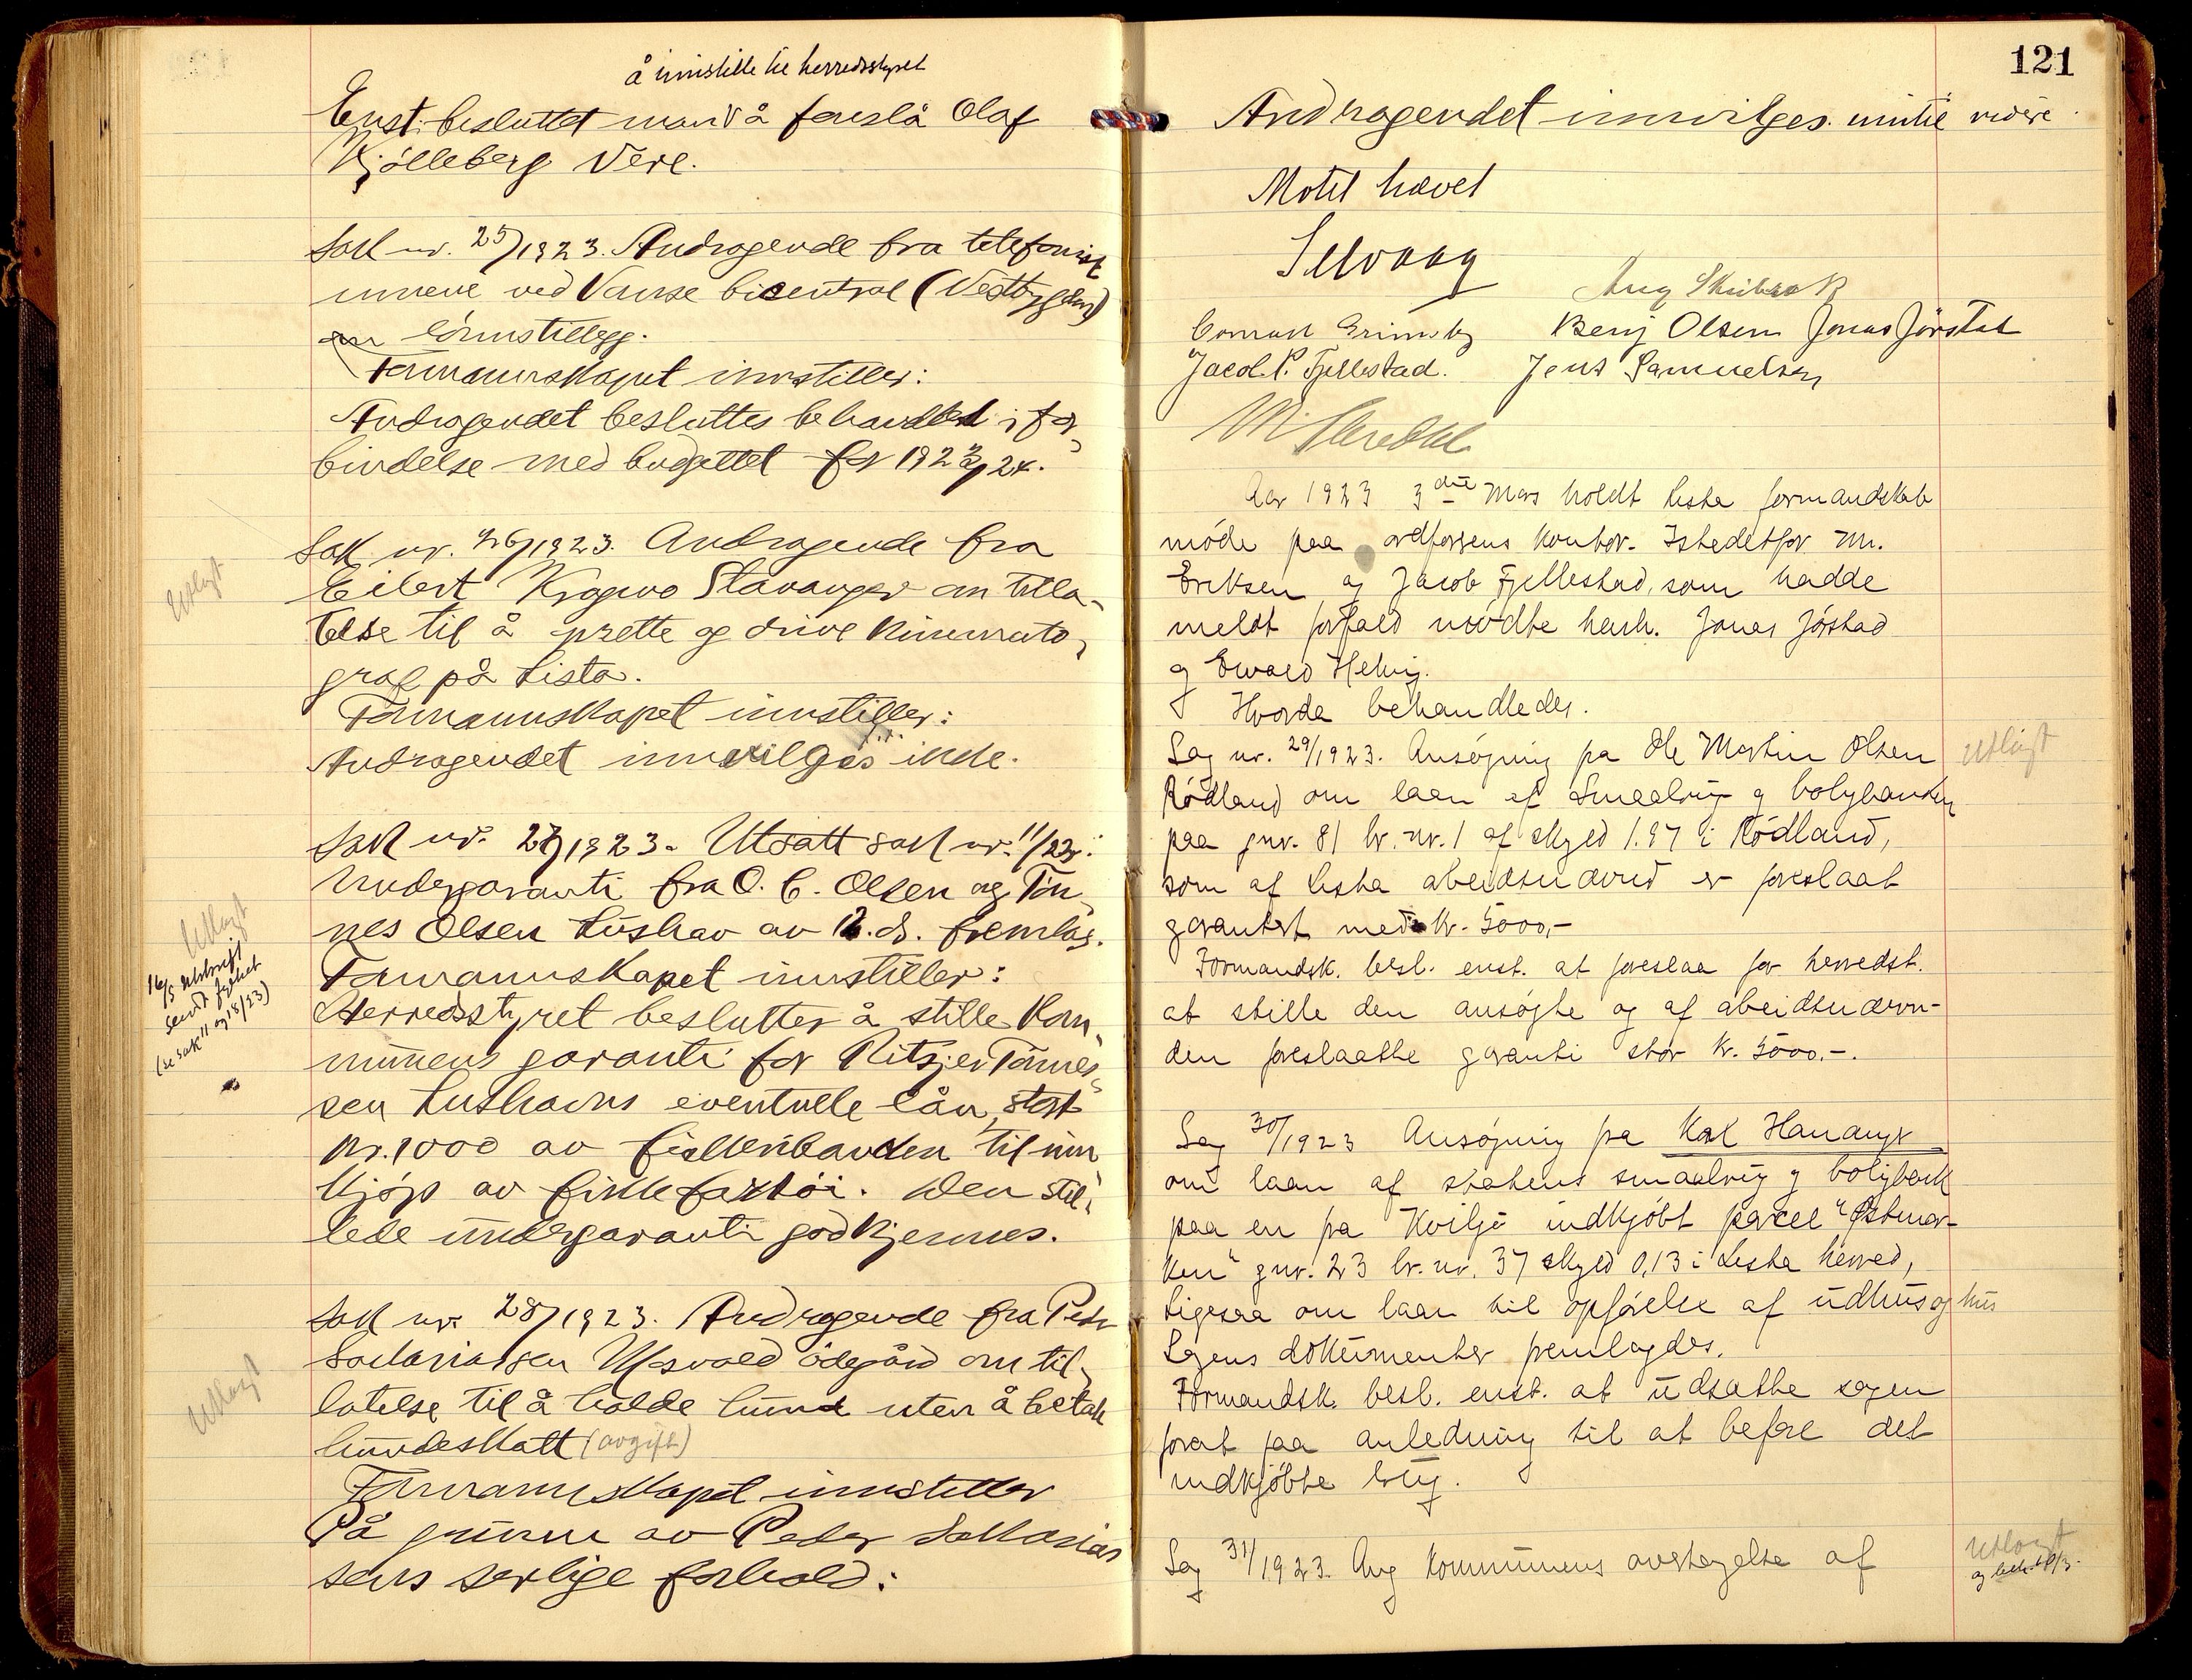 å innstille til herredsstyret
Enst. besluttet man å foreslå Olaf
Kjölleberg Vere.
Sak nr. 25/1923. Andragende fra telefonist
innene ved Vanse bicentral (Vestbygden)
om lönnstillegg.
Formannskapet innstiller:
Andragendet besluttes behandlet i for
bindelse med budgettet for 1923/24.
Utlagt
Sak nr. 26/1923. Andragende fra
Eilert Stavanger om tilla-
telse til å oprette og drive kinemato-
graf på Lista.
Formannskapet innstiller:
Andragendet innvilges ikke.
Sak nr. 27/1923. Utsatt sak nr. 11/23:
Undergaranti fra O. C. Olsen og Tön
nes Olsen Lushav av 12. ds. fremlag.
Utlagt
16/5 utskrift
sendt fylket
(se sak 11 og 18/23)
Formannskapet innstiller:
Herredsstyret beslutter å stille Kom
munens garanti for Ritsjer Tönnes-
sen Lushavns eventuelle lån, stort
kr. 1000 av fiskeribanken til inn
kjöp av fiskefartöi. Den stil-
lede undergaranti godkjennes.
Sak nr. 28/1923. Andragende fra Peder
Sakariassen Ödegård om til-
latelse til å holde hund uten å betale
hundeskatt (avgift)
Utlagt
Formannskapet innstiller
På grunn av Peder Sakarias
sens serlige forhold:
121
Andragendet innvilges inntil videre.
Mötet hævet
Selvaag
Aug
Conrad Grimsby Benj Olsen Jonas Jörstad
Jacob P. Fjellestad. Jens Samuelsen
Aar 1923 3die Mars holdt Lista formandskab
möde paa ordförens kontor. Istedetfor M.
Eriksen og Jacob Fjellestad, som hadde
meldt forfald mödte herh. Jonas Jörstad
og Ewald Helvig.
Hvorda behandledes.
Sag nr. 29/1923. Ansögning fra Ole Martin Olsen
Utlagt
Rödland om laan af Smaabrug og boligbanken
paa gnr. 81 br. nr. 1 af skyld 1.97 i Rödland,
som af Lista arbeidsnævnd er foreslaat
garantert med kr. 5000,-
Formandsk. besl. enst. at foreslaa for herredst.
at stille den ansögte og af arbeidsnævn-
den foreslaatte garanti stor kr. 5000.-.
Sag 30/1923 Ansögning fra Karl Hananger
om laan af statens smaabrug og boligbank
paa en fra Kviljo indkjöbt parcel "Östmar-
ken" gnr. 23 br. nr. 37 skyld 0,13 i Lista herred,
ligesaa om laan til opförelse af udhus og hus
Sagens dokumenter fremlagdes.
Formandsk. besl. enst. at udsætte sagen
forat faa anledning til at befare det
indkjöbte brug.
Sag 31/1923. Ang kommunens overtagelse af
Utlagt
og